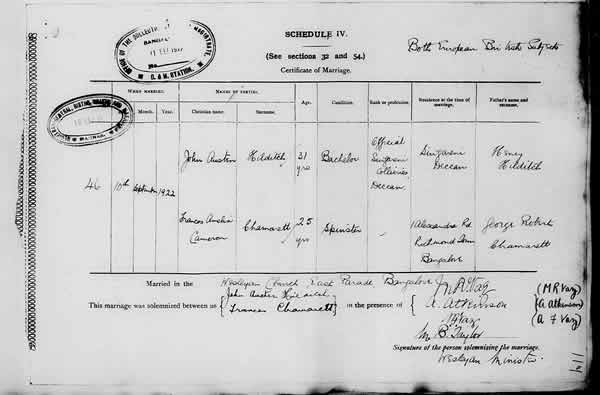 SCHEDULE IV.
(See sections 32 and 54.)
Certificate of Marriage.
Both European British Subjects
OFFICE OF THE COLLECTOR
MAGISTRATE,
C. & M. STATION.
WHEN MARRIED.
NAMES OF PARTIES.
Age.
Condition.
Rank or profession.
Residence at the time of marriage.
Father's name and surname.
Month.
Year.
Christian name.
Surname.
46
10th
September
1922
John Austin
Hilditch
31 yrs
Bachelor
Official Singareni Collieries, Deccan
Singareni Deccan
Henry Hilditch
Frances Amelia Cameron
Chamarett
25 yrs
Spinster
Alexandra Rd Richmond Town Bangalore
George Robert Chamarett
Married in the Wesleyan Church East Parade, Bangalore
This marriage was solemnized between us { John Austin Hilditch
Frances Chamarett } in the presence of {
A. Atkinson
(M R Vaz)
(A Atkinson)
(A F Vaz)
M. B. Taylor
Signature of the person solemnizing the marriage.
Wesleyan Minister